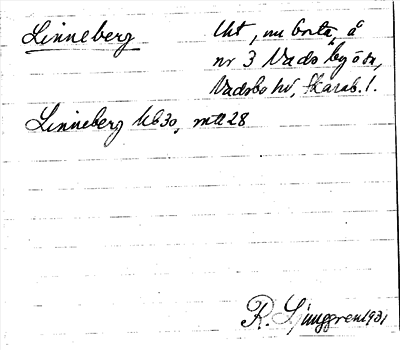 Linneberg
Uht, nu borta, å
nr 3 Vads byödn,
Vadsbo hd, Skarab. l.
Linneberg Ub30, mtl 28
R. Ljunggren 1931